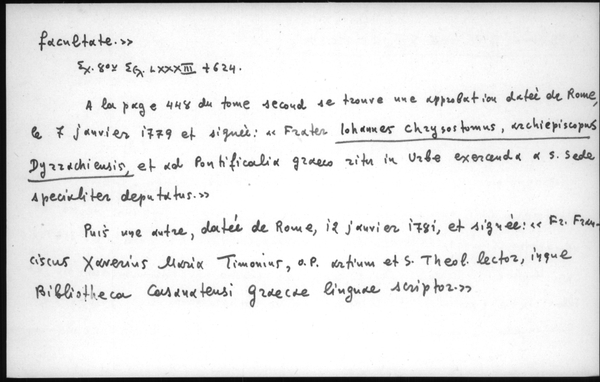 facultate.»
Σχ. 8ον Σελ. LXXXIII + 624.
A la page 448 du tome second se trouve une approbation datée de Rome,
le 7 janvier 1779 et signée: « Frater Iohannes Chrysostomus, archiepiscopus
Dyrrachiensis, et ad Pontificalia graeco ritu in Urbe exercenda a S. Sede
specialiter deputatus.»
Puis une autre, datée de Rome, 12 janvier 1781, et signée: « Fr. Fran-
ciscus Xaverius Maria Timonius, O.P. artium et S. Theol. lector, inque
Bibliotheca Casanatensi Graecae linguae scriptor.»